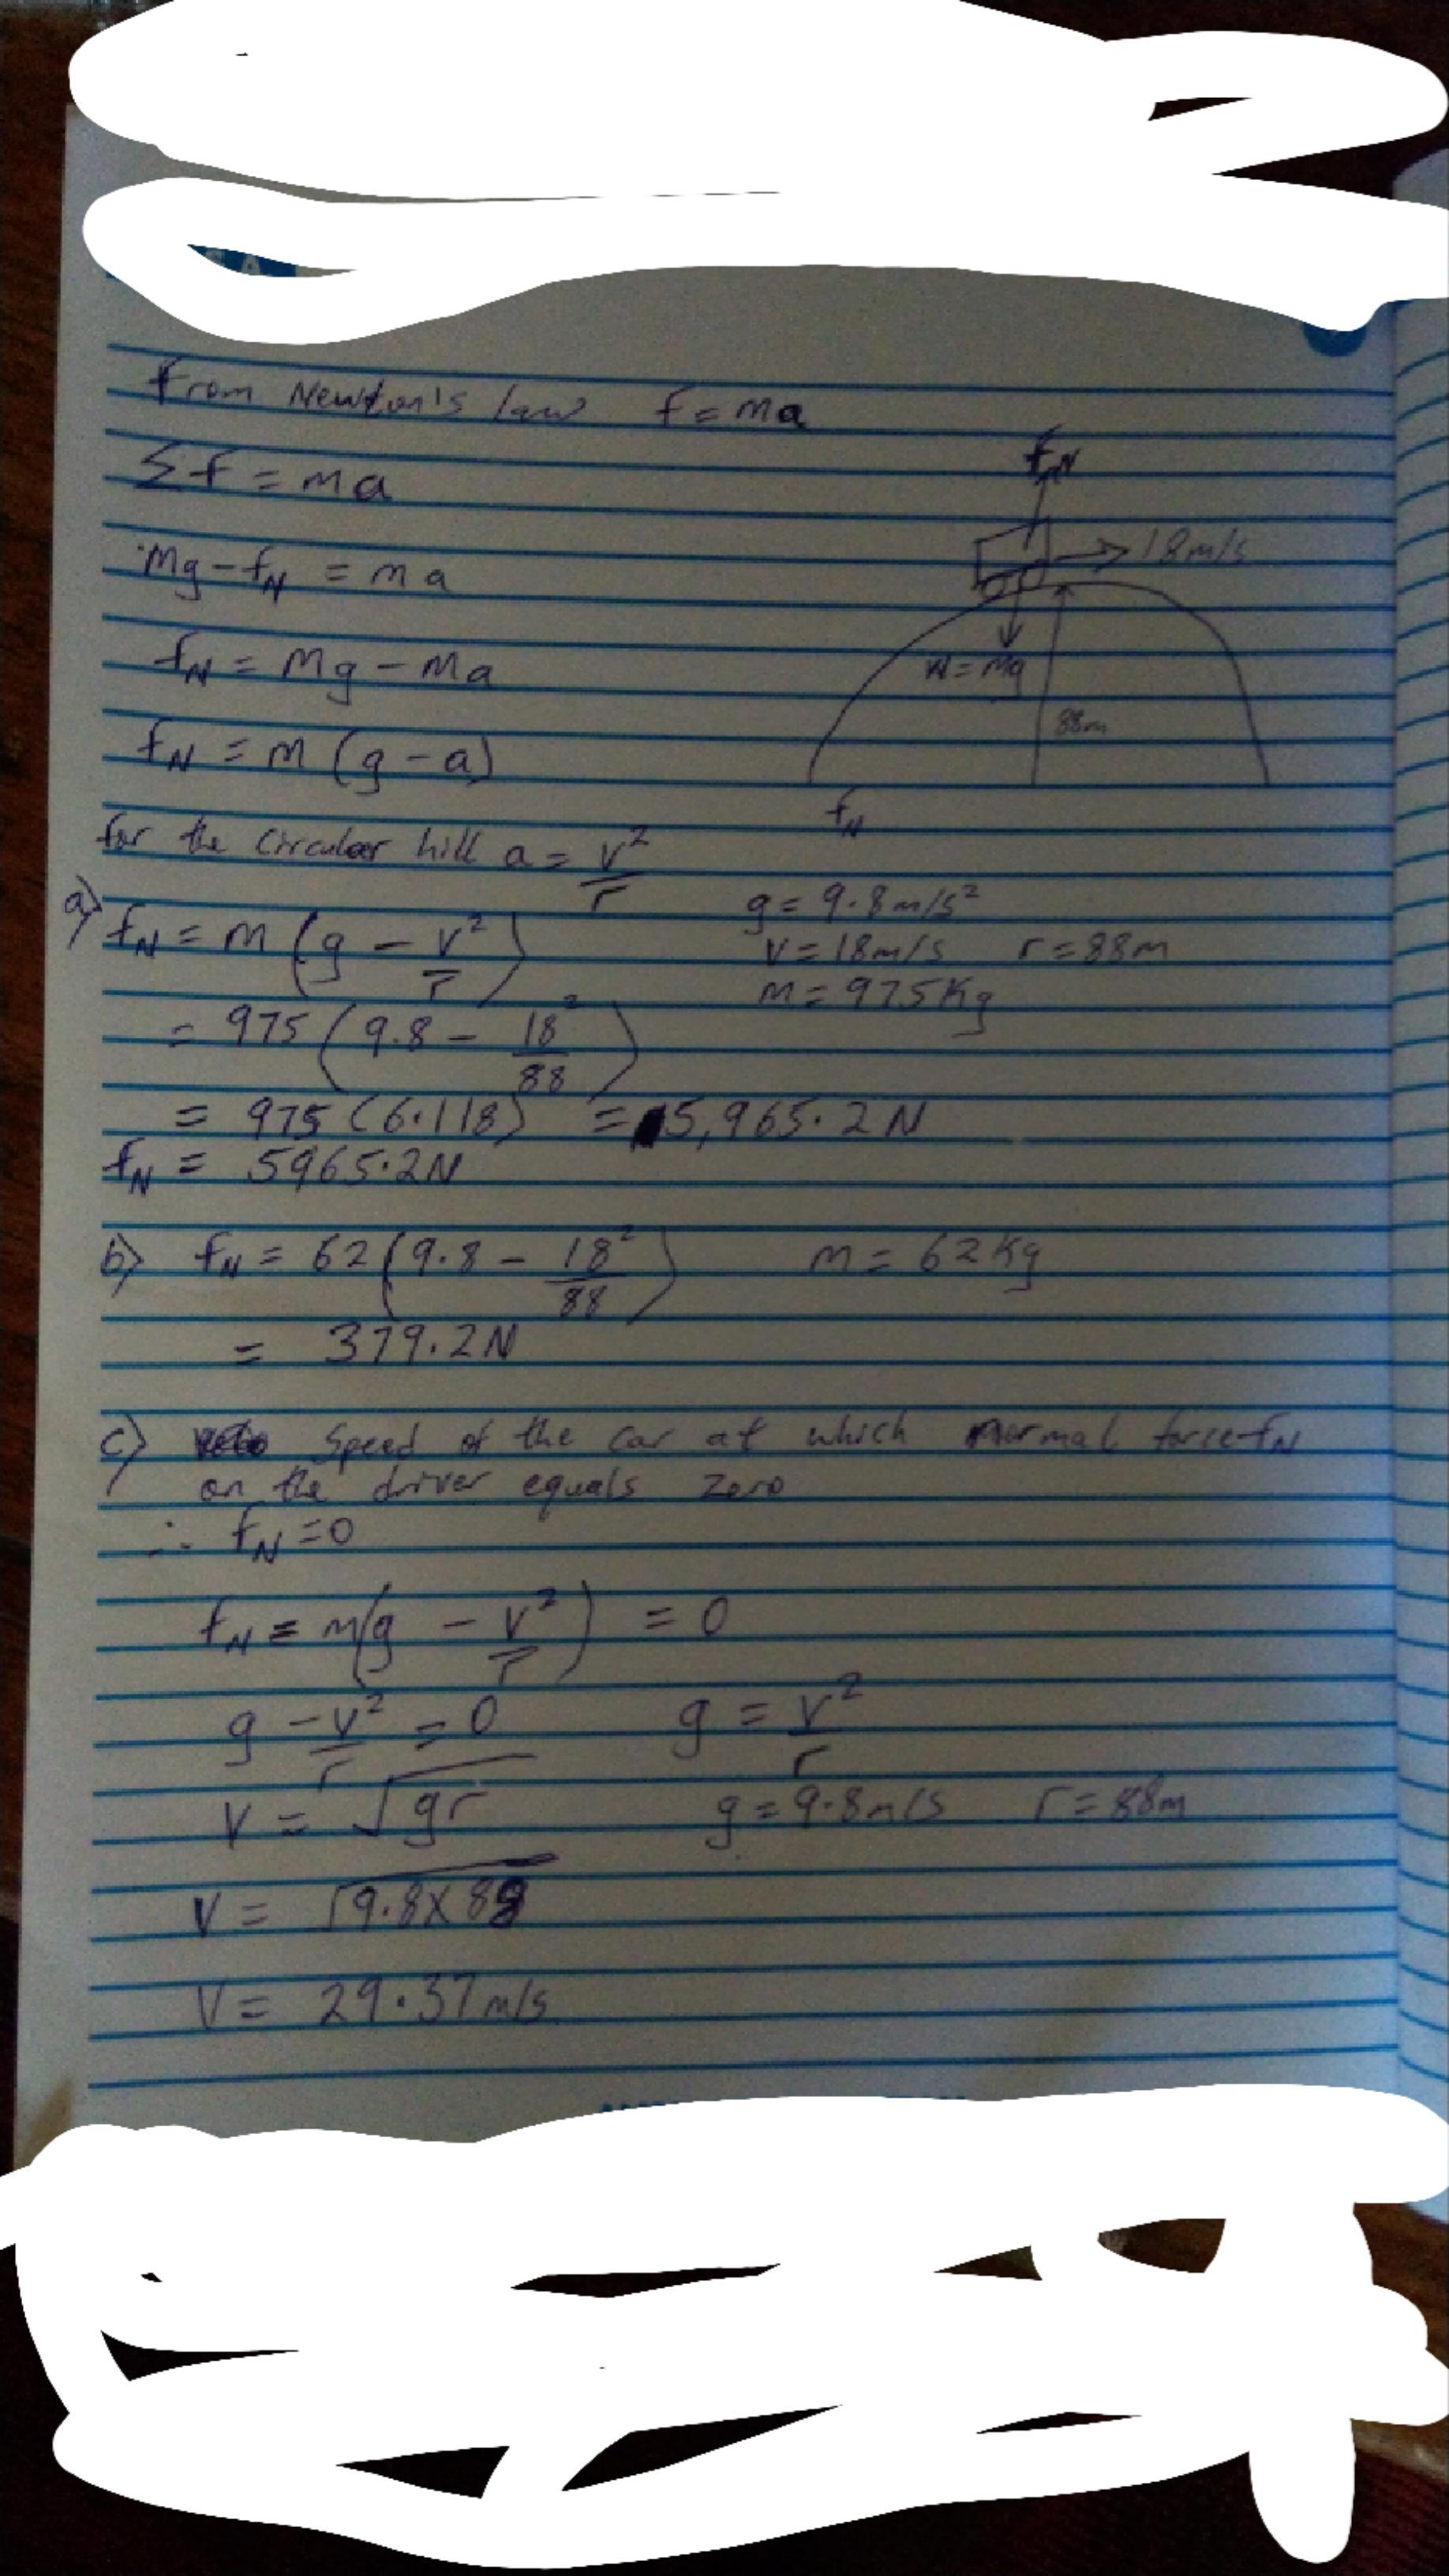 From Newton's law f = ma
Σf = ma
Mg - fN = ma
fN = Mg - Ma
fN = m (g - a)
fN
18m/s
W = Mg
88m
fN
for the Circular hill a = v²/r
a) fN = m (g - v²/r)
g = 9.8m/s²
v = 18m/s r = 88m
m = 975Kg
= 975 (9.8 - 18²/88)
= 975 (6.118) = 5,965.2N
fN = 5965.2N
b) fN = 62 (9.8 - 18²/88) m = 62Kg
= 379.2N
c) Speed of the car at which normal force fN
on the driver equals Zero
∴ fN = 0
fN = m(g - v²/r) = 0
g - v²/r = 0 g = v²/r
v = √gr g = 9.8m/s r = 88m
V = √9.8x88
V = 29.37m/s